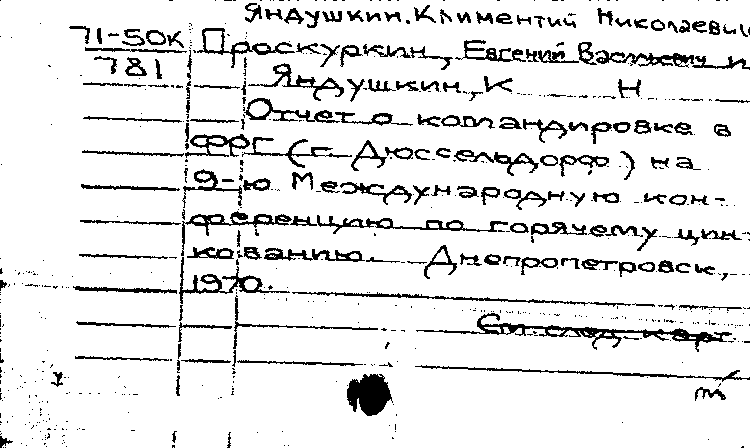 Яндушкин, Климентий Николаевич
71-50К Проскуркин, Евгений Васильевич и
781 Яндушкин, К Н
Отчет о командировке в
ФРГ (г. Дюссельдорф) на
9-ю Международную кон-
ференцию по горячему цин-
кованию. Днепропетровск,
1970.
См. след. карт